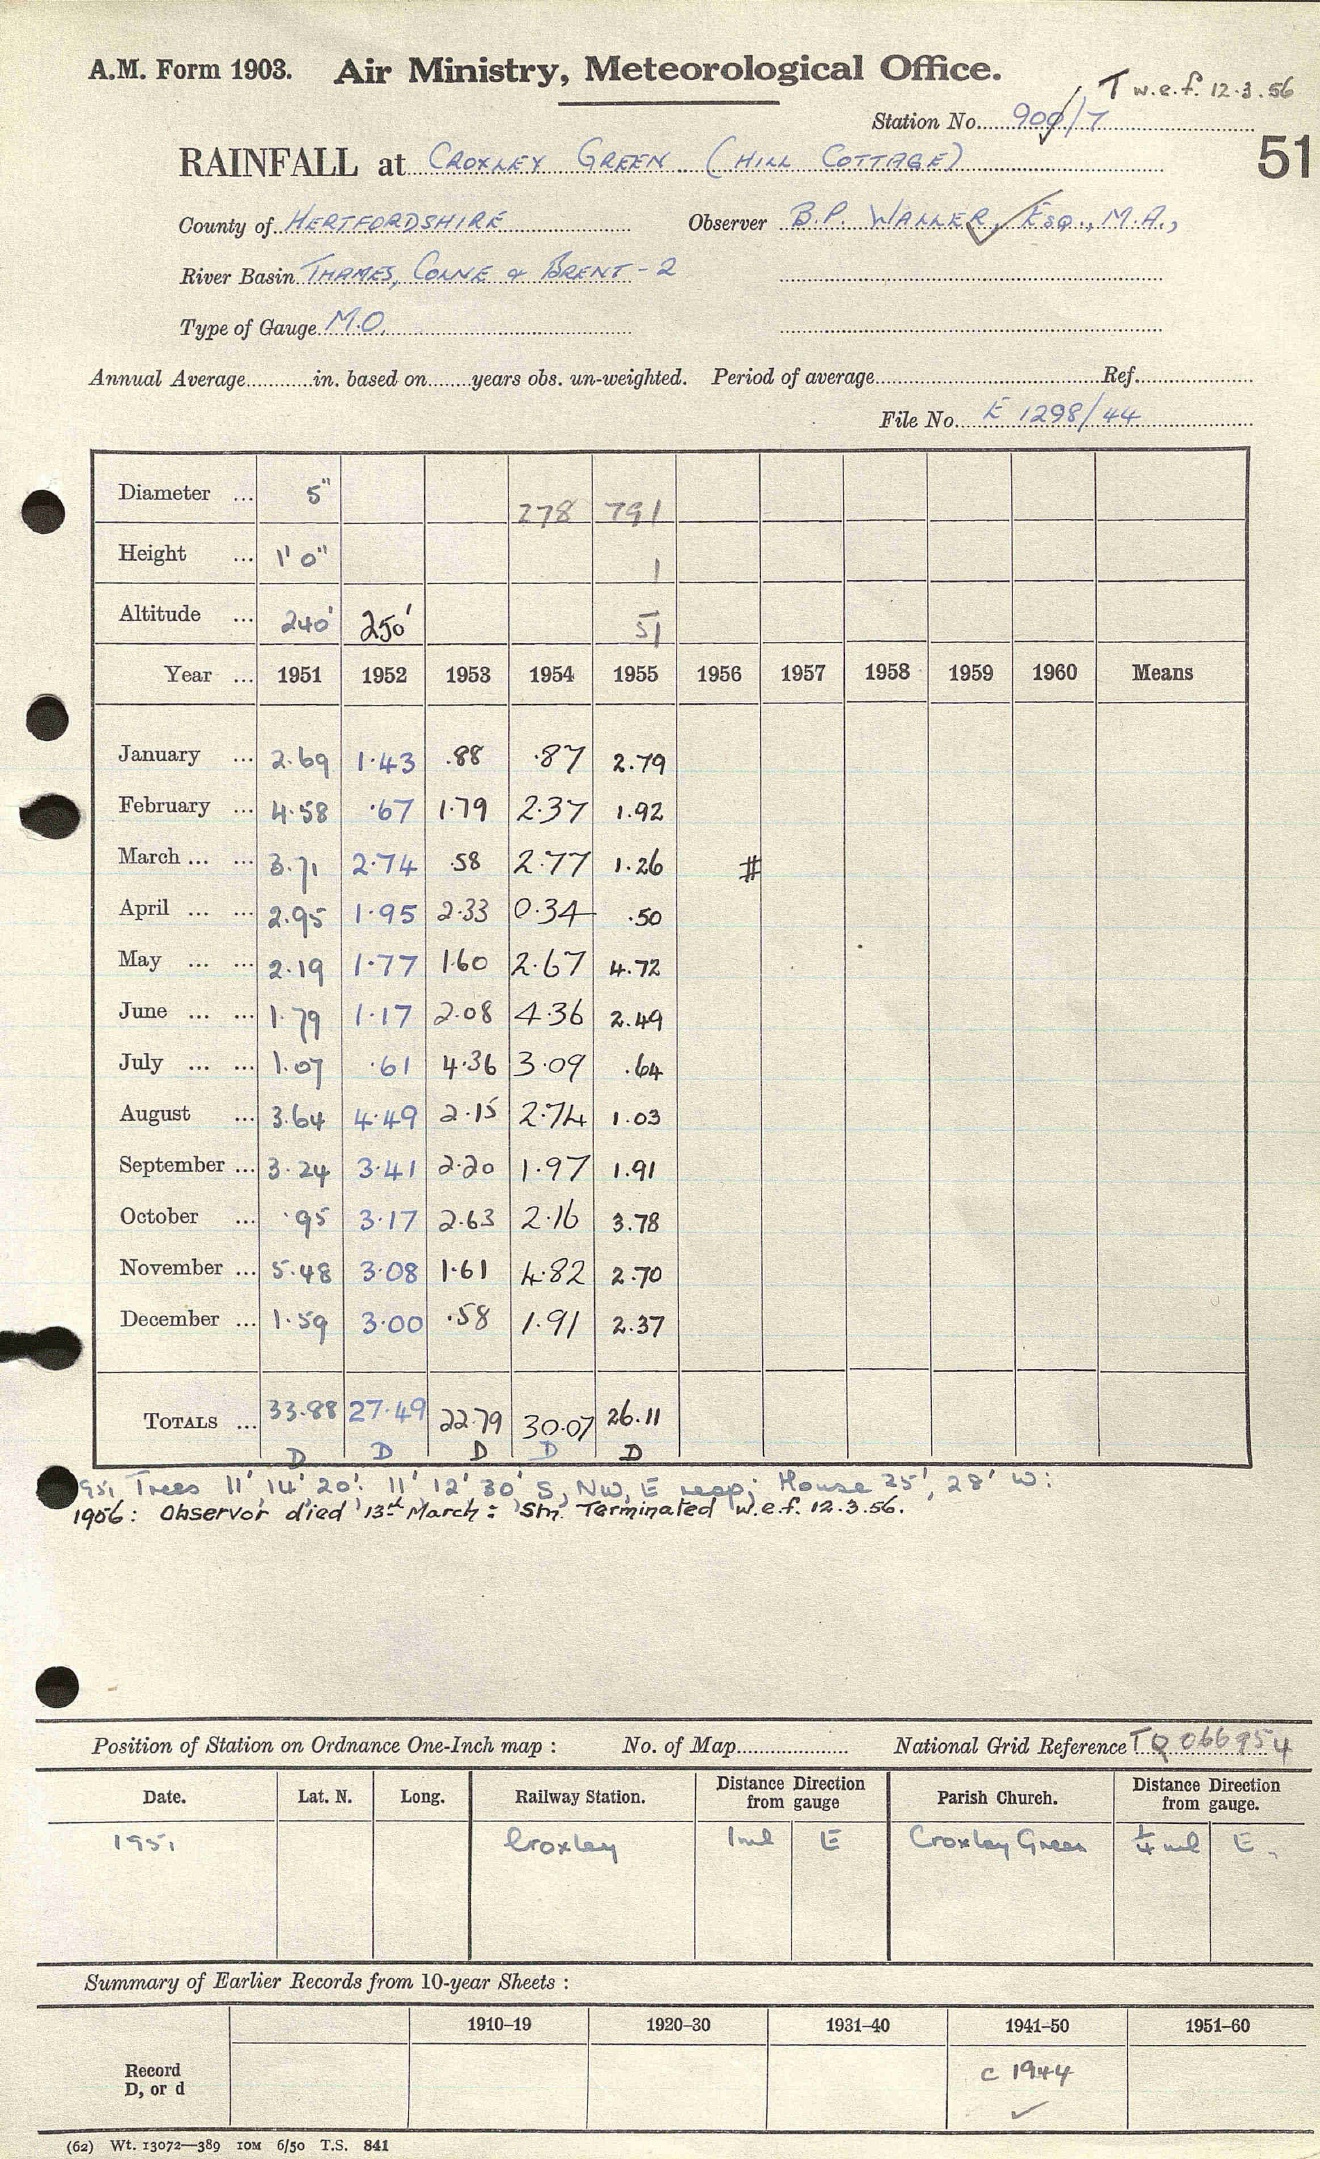 A.M. Form 1903. Air Ministry, Meteorological Office.
T w.e.f. 12.3.56
Station No. 900/7
51
RAINFALL at CROXLEY GREEN (HILL COTTAGE)
County of HERTFORDSHIRE Observer B.P. WALLER, ESQ., M.A.,
River Basin THAMES, COLNE & BRENT - 2
Type of Gauge M.O.
Annual Average in. based on years obs. un-weighted. Period of average Ref.
File No. E 1298/44
Diameter ... 5" 278 791
Height ... 1' 0" 1
Altitude ... 240' 250' 51
Year ... 1951 1952 1953 1954 1955 1956 1957 1958 1959 1960 Means
January ... 2.69 1.43 .88 .87 2.79
February ... 4.58 .67 1.79 2.37 1.92
March ... ... 3.71 2.74 .58 2.77 1.26 #
April ... ... 2.95 1.95 2.33 0.34 .50
May ... ... 2.19 1.77 1.60 2.67 4.72
June ... ... 1.79 1.17 2.08 4.36 2.49
July ... ... 1.07 .61 4.36 3.09 .64
August ... 3.64 4.49 2.15 2.74 1.03
September ... 3.24 3.41 2.20 1.97 1.91
October ... .95 3.17 2.63 2.16 3.78
November ... 5.48 3.08 1.61 4.82 2.70
December ... 1.59 3.00 .58 1.91 2.37
TOTALS ... 33.88 27.49 22.79 30.07 26.11
D D D D D
951 Trees 11', 14' 20': 11', 12' 30' S, NW, E resp; House 25', 28' W:
1956: Observor died 13th March: Stn. Terminated w.e.f. 12.3.56.
Position of Station on Ordnance One-Inch map : No. of Map National Grid Reference TQ 066954
Date. Lat. N. Long. Railway Station. Distance Direction from gauge Parish Church. Distance Direction from gauge.
1951 Croxley 1 ml E Croxley Green ¼ ml E.
Summary of Earlier Records from 10-year Sheets :
1910–19 1920–30 1931–40 1941–50 1951–60
Record D, or d c 1944
(62) Wt. 13072—389 10M 6/50 T.S. 841